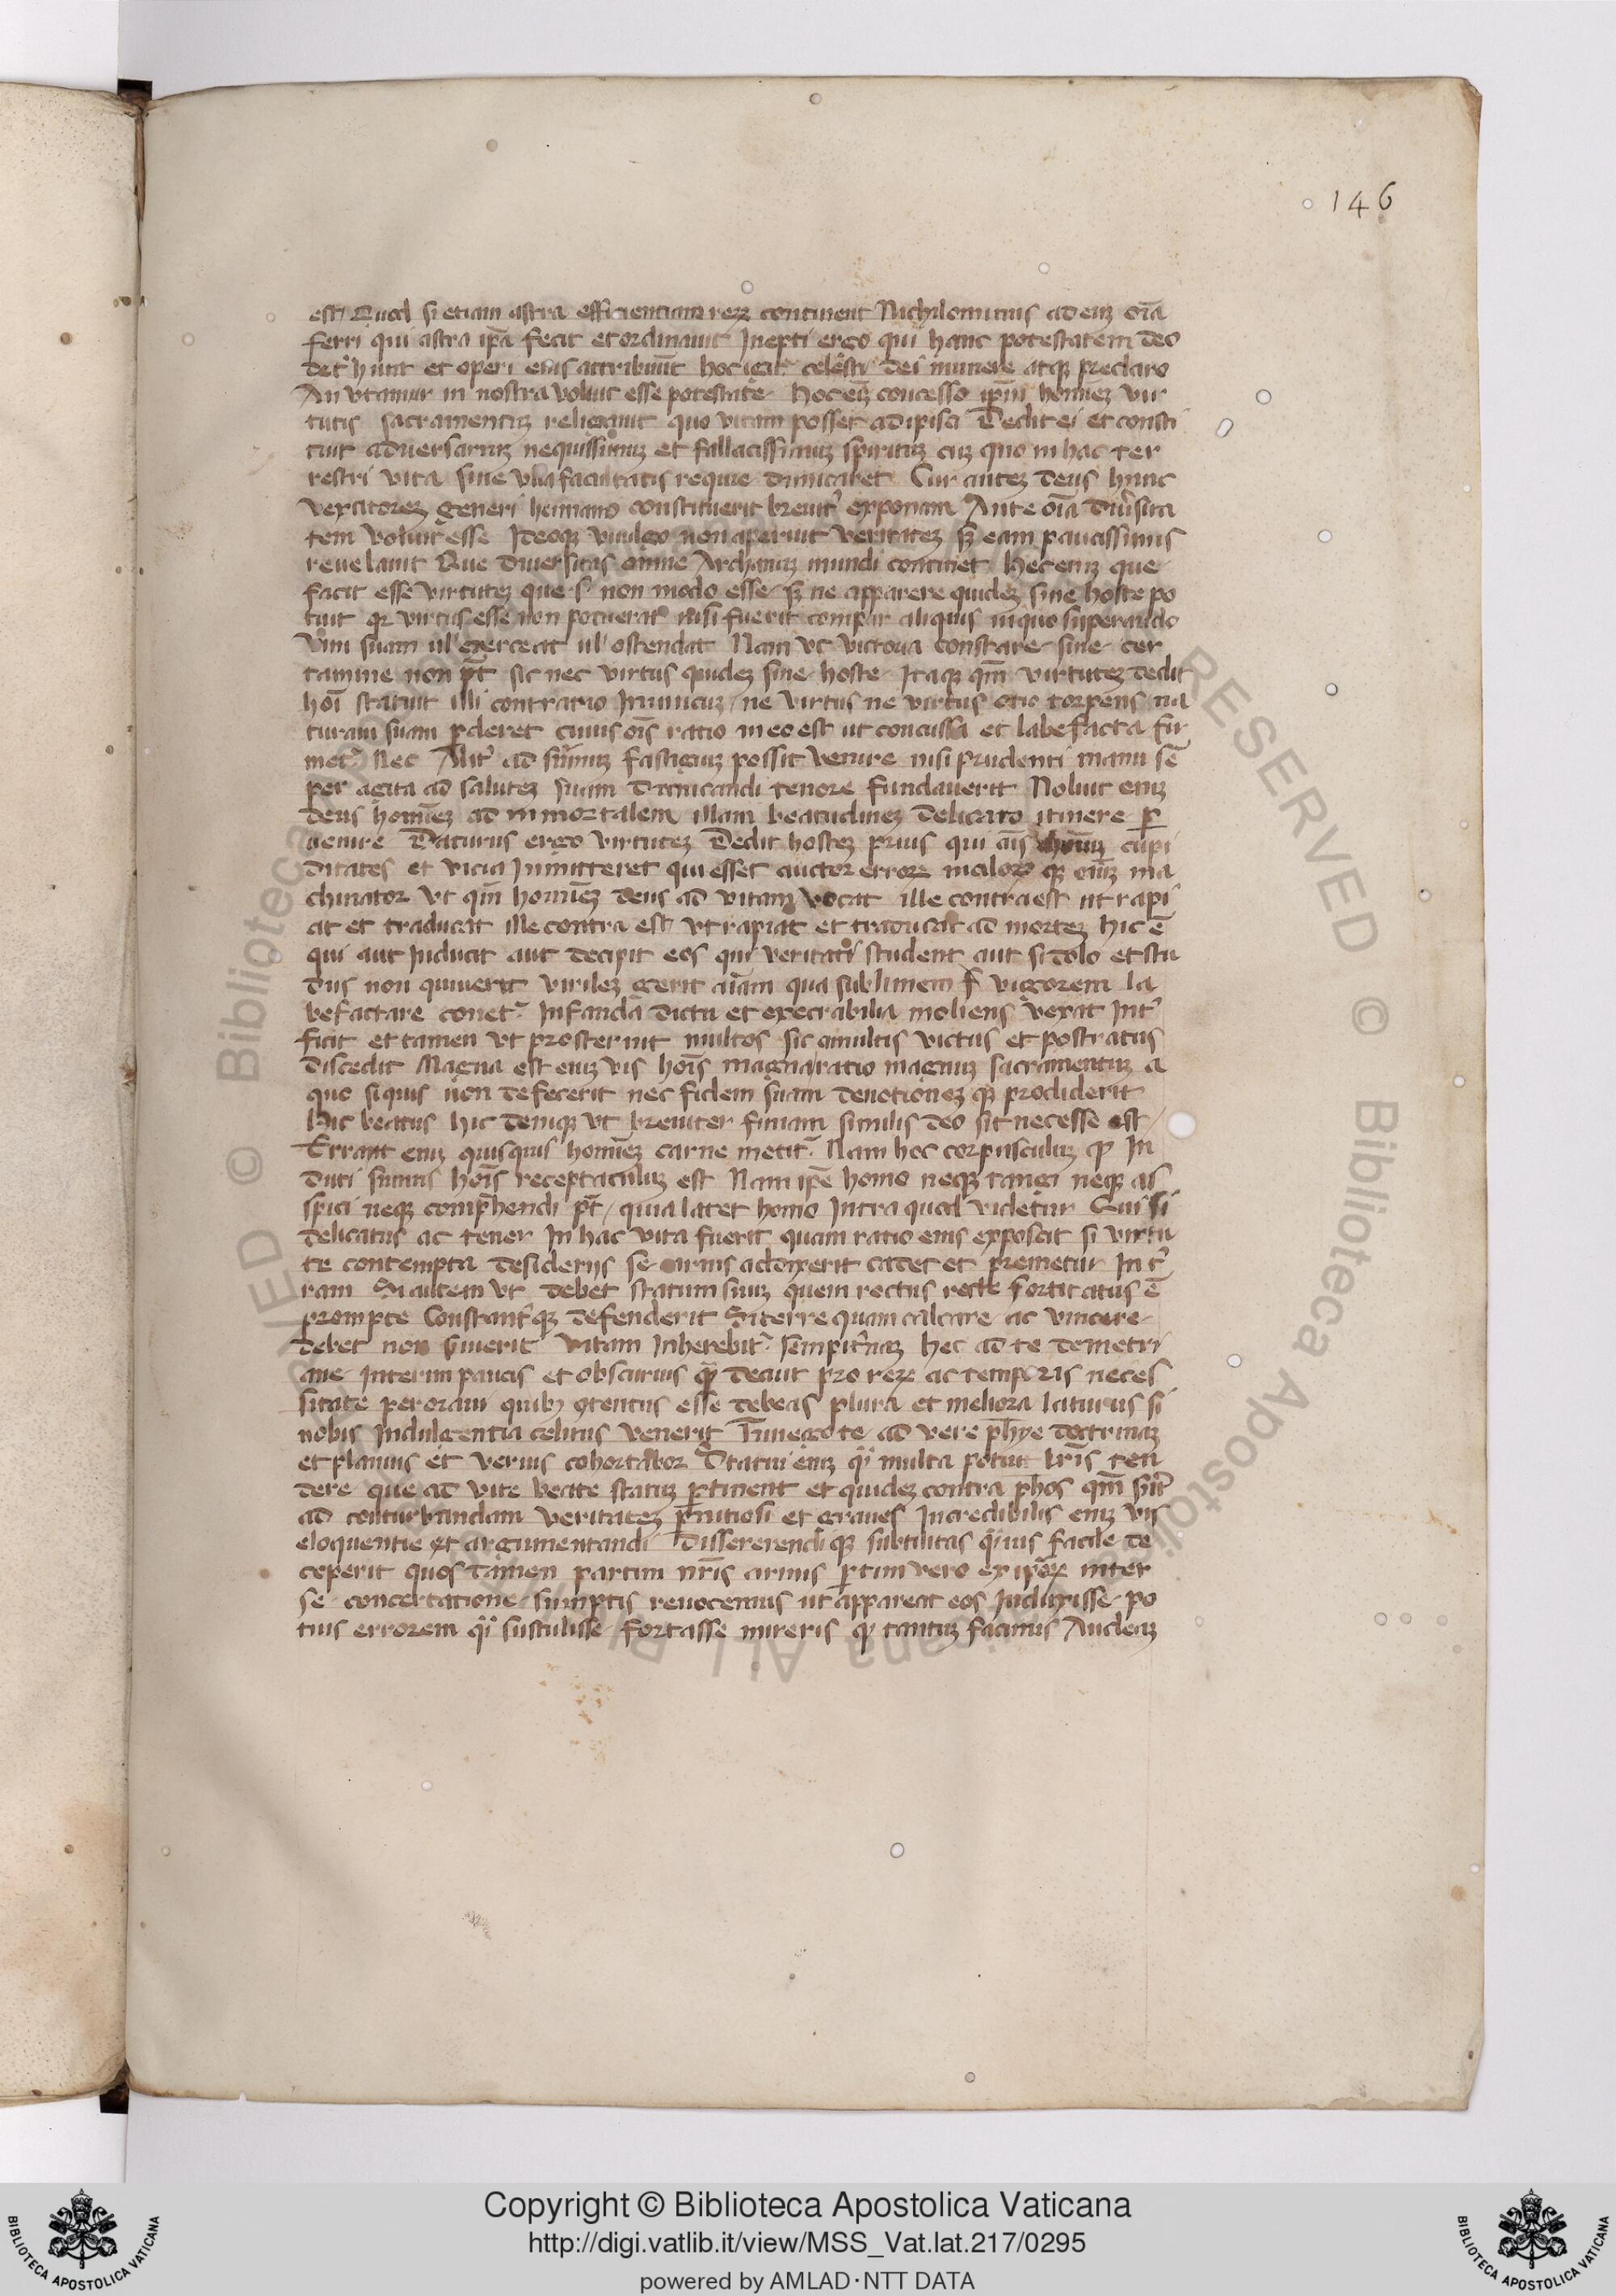 146
est Quod si etiam astra efficientiam reꝝ continent Nichilominus ad euꝫ oīa
ferri qui astra ip̄a fecit et ordinauit Inepti ergo qui hanc potestatem deo
det̾hunt et operi eius attribuūt hoc igit̾ celesti dei munere atqꝫ preclaro
An vtamur in nostra voluit esse potestate hoc eiꝫ concesso ip̄m homīeꝫ vir
tutis sacramentuꝫ religauit quo vitam posset adipisci Dedit ei et consti
tuit aduersariuꝫ nequissimuꝫ et fallacissimuꝫ spirituꝫ cuꝫ quo in hac ter
restri vita sine vlla facultatis requie dimicaret Cur auteꝫ deus hunc
vexatoreꝫ generi humano constituerit breuit̾ exponam Ante oīa diu̾sita
tem voluit esse Ideoqꝫ vulgo non aperuit veritateꝫ sꝫ eam paucissimis
reuelauit Que diuersitas omne Archanuꝫ mundi continet hec eniꝫ que
facit esse virtuteꝫ que s non modo esse sꝫ ne apparere quideꝫ sine hoste po
tuit qꝛ virtus esse non potuerat nisi fuerit compar aliquis in quo superando
vim suam ul̾ exerceat ul̾ ostendat Nam vt victoria constare sine cer
tamine non pt̄ sic nec virtus quideꝫ sine hoste Itaqꝫ qm̄ virtuteꝫ dedit
hoī statuit illi contrario Inimicuꝫ ne virtus ne virtus otio torpens na
turam suam ꝑderet cuius oīs ratio in eo est ut concussa et labefacta fir
met̾ Nec Alit̾ ad sūmuꝫ fastigiuꝫ possit venire nisi prudenti manu sē
per agita ad saluteꝫ suam dimicandi tenore fundauerit Noluit eniꝫ
deus homīeꝫ ad inmortalem illam beatudineꝫ delicato itinere ꝑ
uenire Daturus ergo virtuteꝫ Dedit hosteꝫ prius qui aīs hoīuꝫ cupi
ditates et vicia Inmitteret qui esset auctor erroꝝ maloꝝ qꝫ oīuꝫ ma
chinator vt qm̄ homīeꝫ deus ad vitam vocat ille contra est ut rapi
at et traducat ille contra est vt rapiat et traducat ad morteꝫ hic ē
qui aut Inducit aut decipit eos qui veritati student aut si dolo et stu
diis non quiuerit virileꝫ gerit aīam qua sublimem s vigorem la
befactare conet̾ Infanda dictu et execrabilia moliens vexat Int̾
ficit et tamen vt prosternit multos sic amultis victus et postratus
discedit Magna est eniꝫ vis hoīs magna ratio magnuꝫ sacramentuꝫ a
quo siquis non defecerit nec fidem suam deuotioneꝫ qꝫ prodiderit
hic beatus hic deniqꝫ vt breuiter finiam similis deo sit necesse est
Errant eniꝫ quisquis homīeꝫ carne metit̾ Nam hoc corpusculuꝫ qꝫ In
duti sumus hoīs receptaculuꝫ est Nam ipē homo neqꝫ tangi neqꝫ as
spici neqꝫ comp̄hendi pt̄ quia latet homo Intra quod videtur Qui si
delicatus ac tener In hac vita fuerit quam ratio eius exposcit si virtu
te contempta desiderijs se carnis adixerit cadet et premetur In t̾
ram Si autem vt debet statum suuꝫ quem rectus recte fortitatus ē
prompte Constant̾qꝫ defenderit Si terre quam calcare ac vincere
debet non siuerit vitam Inherebit̾ sempit̾naꝫ hec ad te demetri
ane Interim paucis et obscurius qꝫ decuit pro reꝝ ac temporis neces
sitate peroraui quibꝫ ꝯtentus esse debeas plura et meliora laturus si
nobis Indulgentia celitus venerit Tunc ego te ad vere ph̄ye doctrinaꝫ
et planius et verius cohortabor Statui eniꝫ qꝫ multa potui lrīs ten
dere que ad vite beate statuꝫ ꝑtinent et quideꝫ contra ph̄os qm̄ sūt
ad conturbandam veritateꝫ ꝑnitiosi et graues Incredibilis eniꝫ vis
eloquentie et argumentandi disserendiqꝫ subtilitas qꝫuis facile de
ceperit quos tamen partim nrīs armis ꝑtim vero ex ip̄oꝝ inter
se concertatione sumptis reuocemus ut appareat eos Induxisse po
tius errorem qꝫ sustulisse fortasse mireris qꝫ tantuꝫ facinus Audeaꝫ
Copyright © Biblioteca Apostolica Vaticana
http://digi.vatlib.it/view/MSS_Vat.lat.217/0295
powered by AMLAD·NTT DATA
BIBLIOTECA APOSTOLICA VATICANA
BIBLIOTECA APOSTOLICA VATICANA